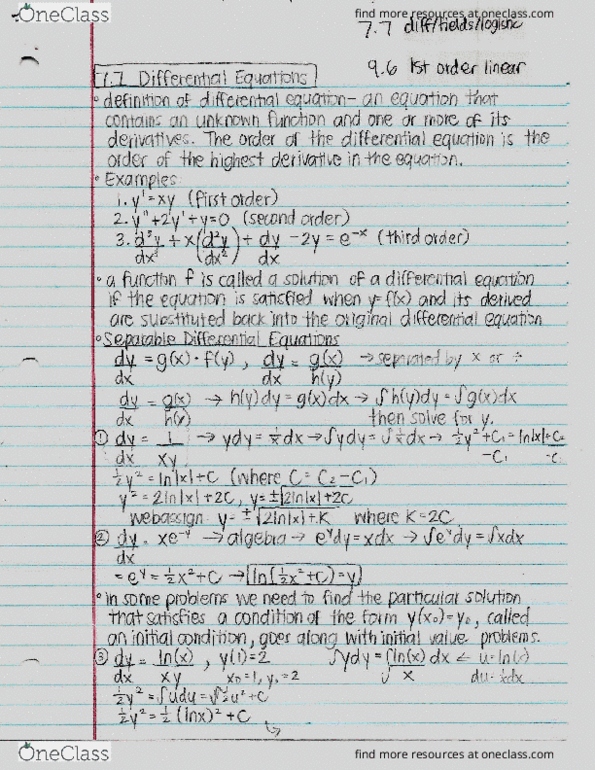 OneClass
find more resources at oneclass.com
7.7 diff/fields/logistic
9.6 1st order linear
7.7 Differential Equations
• definition of differential equation- an equation that
contains an unknown function and one or more of its
derivatives. The order of the differential equation is the
order of the highest derivative in the equation.
• Examples
1. y' = xy (first order)
2. y" + 2y' + y = 0 (second order)
3. d³y/dx³ + x(d²y/dx²) + dy/dx - 2y = e^-x (third order)
• a function f is called a solution of a differential equation
if the equation is satisfied when y = f(x) and its derived
are substituted back into the original differential equation
• Separable Differential Equations
dy/dx = g(x) · f(y), dy/dx = g(x)/h(y) → separated by x or ÷
dy/dx = g(x)/h(y) → h(y)dy = g(x)dx → ∫h(y)dy = ∫g(x)dx
then solve for y.
① dy/dx = 1/xy → ydy = 1/x dx → ∫ydy = ∫1/x dx → ½y² + C₁ = ln|x| + C₂
-C₁ -C₁
½y² = ln|x| + C (where C = C₂ - C₁)
y² = 2ln|x| + 2C, y = ±√2ln|x| + 2C
webassign y = ±√2ln|x| + K where K = 2C
② dy/dx = xe^-y → algebra → e^y dy = xdx → ∫e^y dy = ∫xdx
= e^y = ½x² + C → ln(½x² + C) = y
• in some problems we need to find the particular solution
that satisfies a condition of the form y(x₀) = y₀, called
an initial condition, goes along with initial value problems.
③ dy/dx = ln(x)/xy, y(1) = 2 ∫ydy = ∫ln(x)/x dx ← u = ln(x)
x₀ = 1, y₀ = 2 du = 1/x dx
½y² = ∫udu = ½u² + C
½y² = ½(lnx)² + C
OneClass
find more resources at oneclass.com